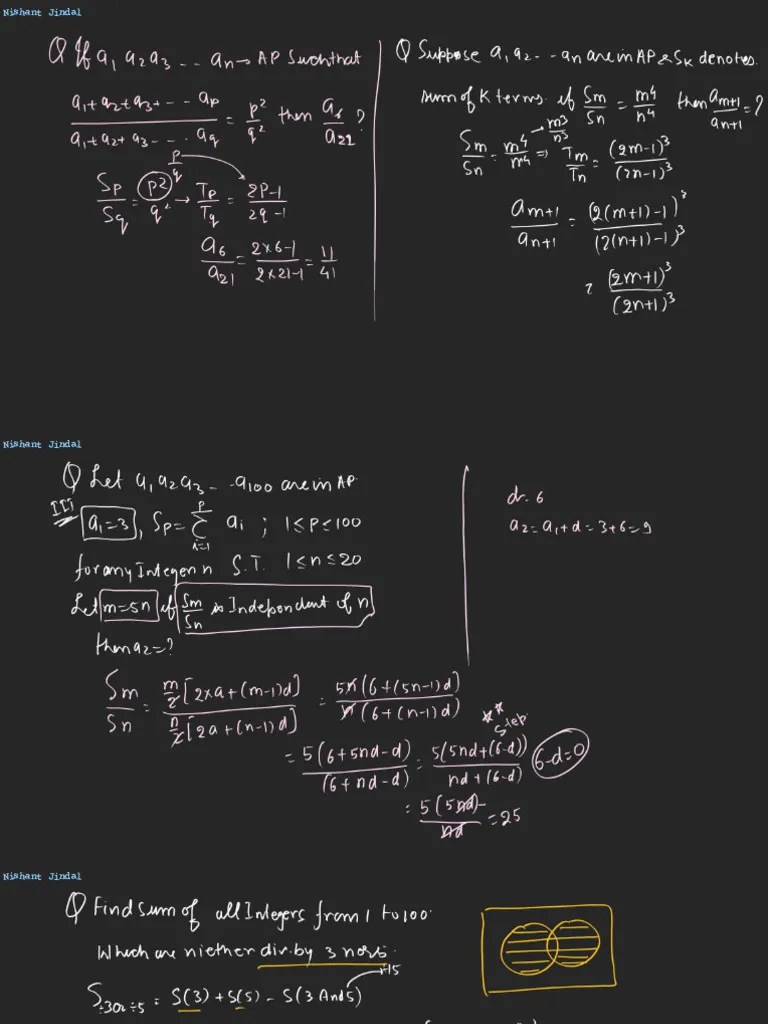 Nishant Jindal
Q If a1 a2 a3 ... an → AP Such that
(a1+a2+a3+...ap)/(a1+a2+a3....aq) = p²/q² then a6/a22?
p/q
Sp/Sq = p²/q² → Tp/Tq = (2p-1)/(2q-1)
a6/a21 = (2×6-1)/(2×21-1) = 11/41
Q Suppose a1 a2 .. an are in AP & Sk denotes
sum of K terms. if Sm/Sn = m⁴/n⁴ then am+1/an+1 = ?
→ m³/n³
Sm/Sn = m⁴/m⁴ ⇒ Tm/Tn = (2m-1)³/(2n-1)³
am+1/an+1 = (2(m+1)-1)³/(2(n+1)-1)³
= (2m+1)³/(2n+1)³
Nishant Jindal
Q Let a1 a2 a3 - - a100 are in AP
IIT a1=3, Sp= Σ(i=1 to p) ai ; 1≤p≤100
for any Integer n S.T. 1≤n≤20
Let m=5n if Sm/Sn is Independent of n
then a2=?
Sm/Sn = m/2[2×a+(m-1)d] / n/2[2a+(n-1)d] = 5n(6+(5n-1)d)/n(6+(n-1)d)
** Step
= 5(6+5nd-d)/(6+nd-d) = 5(5nd+(6-d))/nd+(6-d) 6-d=0
= 5(5nd)/nd = 25
d=6
a2=a1+d=3+6=9
Nishant Jindal
Q Find sum of all Integers from 1 to 100.
Which are niether div. by 3 nor 5.
÷15
S÷3 or ÷5 = S(3) + S(5) - S(3 And 5)